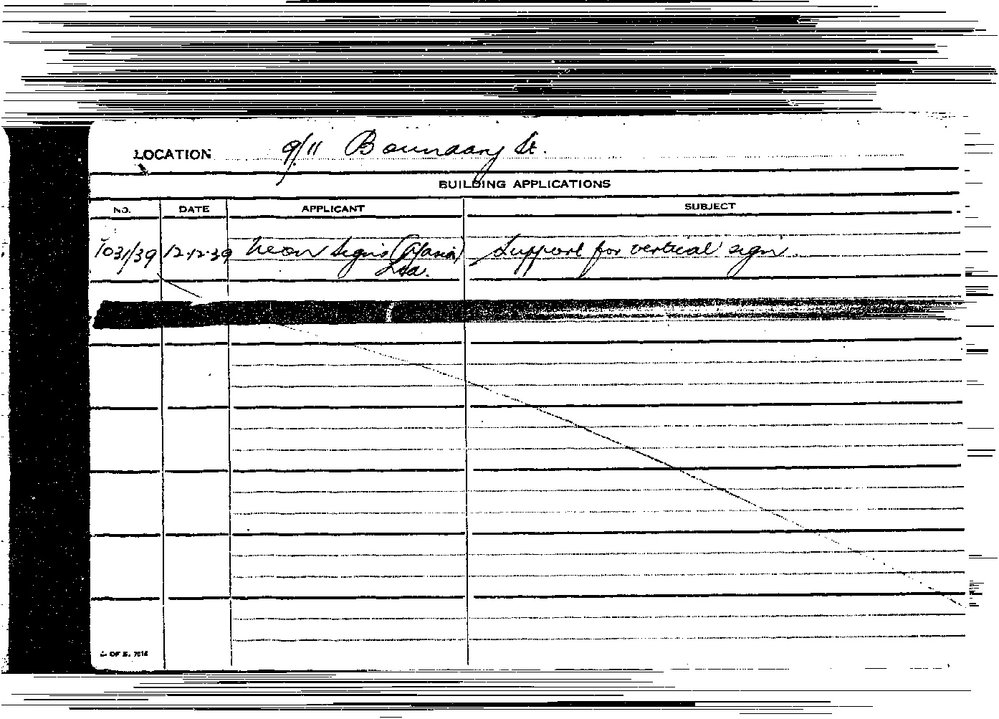 LOCATION 9/11 Boundary St.
BUILDING APPLICATIONS
NO. DATE APPLICANT SUBJECT
1031/39 12-12-39 Neon Signs Support for vertical sign.
Ltd.